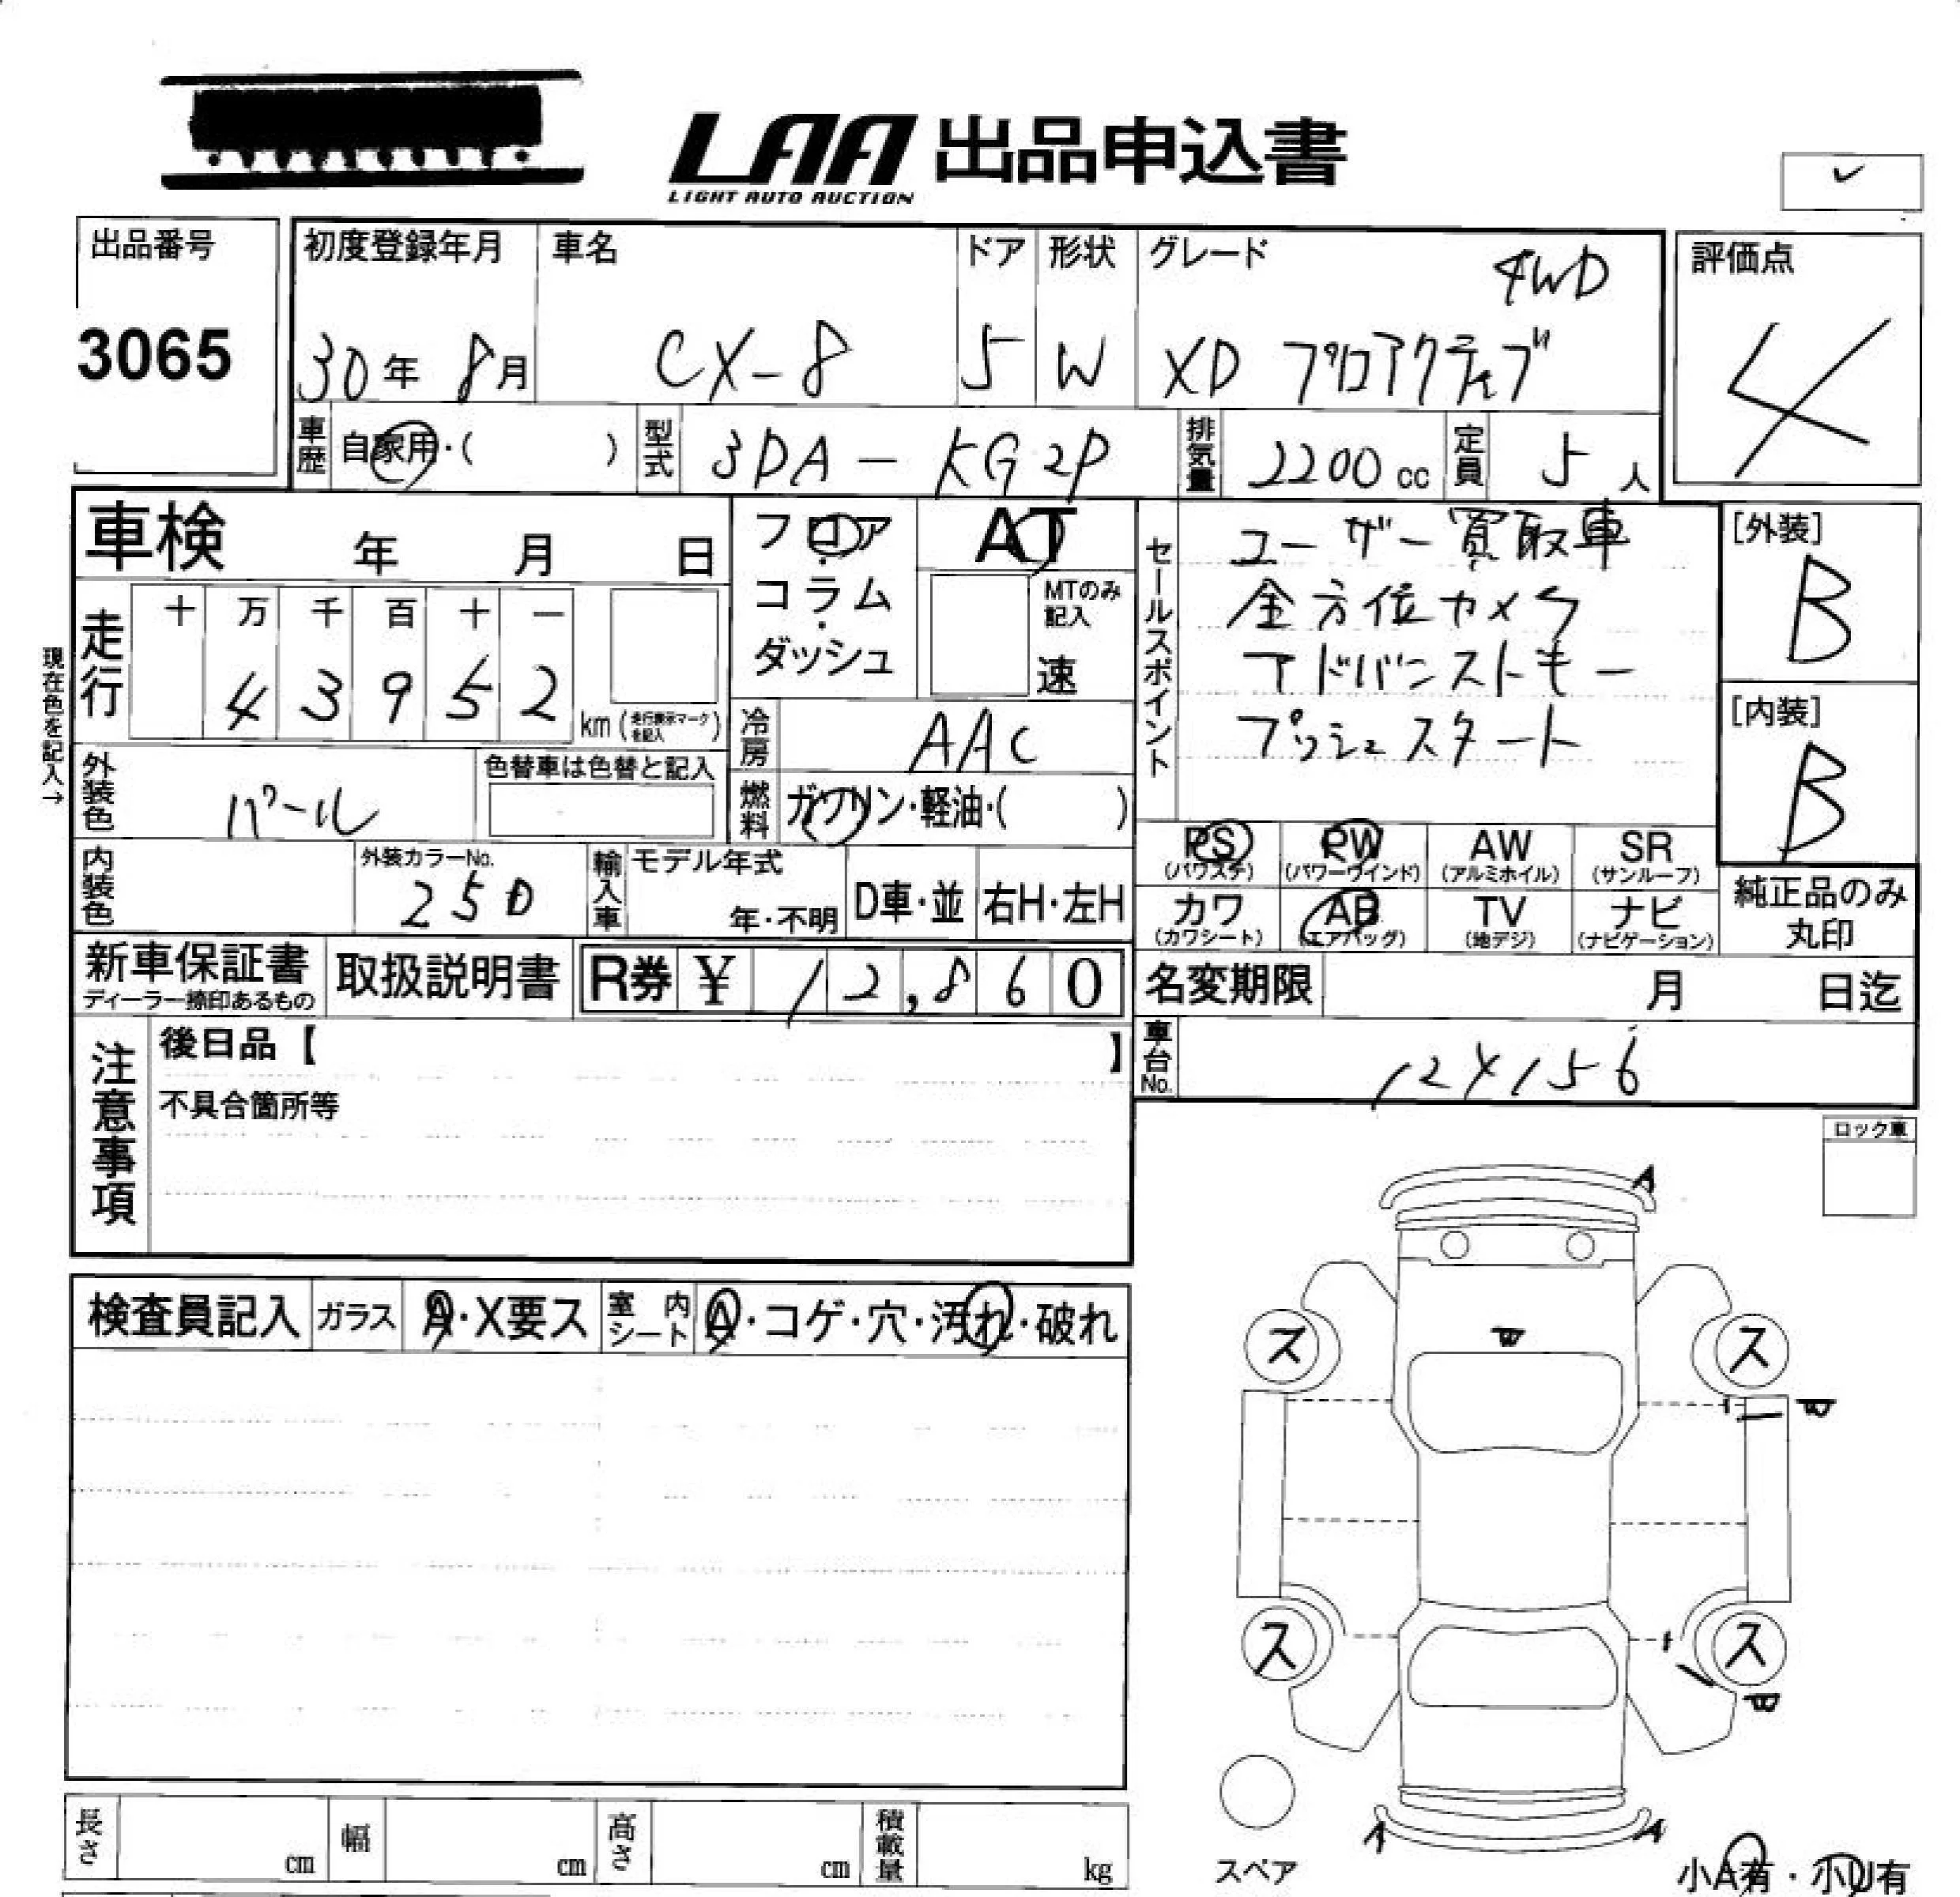 LAA 出品申込書
LIGHT AUTO AUCTION
出品番号
3065
初度登録年月
30年 8月
車名
CX-8
ドア
5
形状
W
グレード
4WD
XD プロアクティブ
評価点
4
車歴
自家用・( )
型式
3DA - KG2P
排気量
2200 cc
定員
5 人
車検 年 月 日
フロア
・
コラム
・
ダッシュ
AT
MTのみ
記入
速
現在色を記入→
走行
十 万 千 百 十 一
4 3 9 5 2
km (走行表示マークを記入)
セールスポイント
ユーザー買取車
全方位カメラ
アドバンストキー
プッシュスタート
[外装]
B
[内装]
B
冷房
AAC
燃料
ガソリン・軽油・( )
外装色
パール
色替車は色替と記入
内装色
外装カラーNo.
25D
輸入車
モデル年式
年・不明
D車・並
右H・左H
PS
(パワステ)
PW
(パワーウインド)
AW
(アルミホイル)
SR
(サンルーフ)
カワ
(カワシート)
AB
(エアバッグ)
TV
(地デジ)
ナビ
(ナビゲーション)
純正品のみ
丸印
新車保証書
ディーラー捺印あるもの
取扱説明書
R券 ¥ 12,860
名変期限 月 日迄
車台No.
124156
注意事項
後日品【 】
不具合箇所等
ロック車
検査員記入
ガラス
A・X要ス
室内
シート
A・コゲ・穴・汚れ・破れ
A
ス
ス
ス
ス
A
A
スペア
小A有・小U有
長さ
cm
幅
cm
高さ
cm
積載量
kg